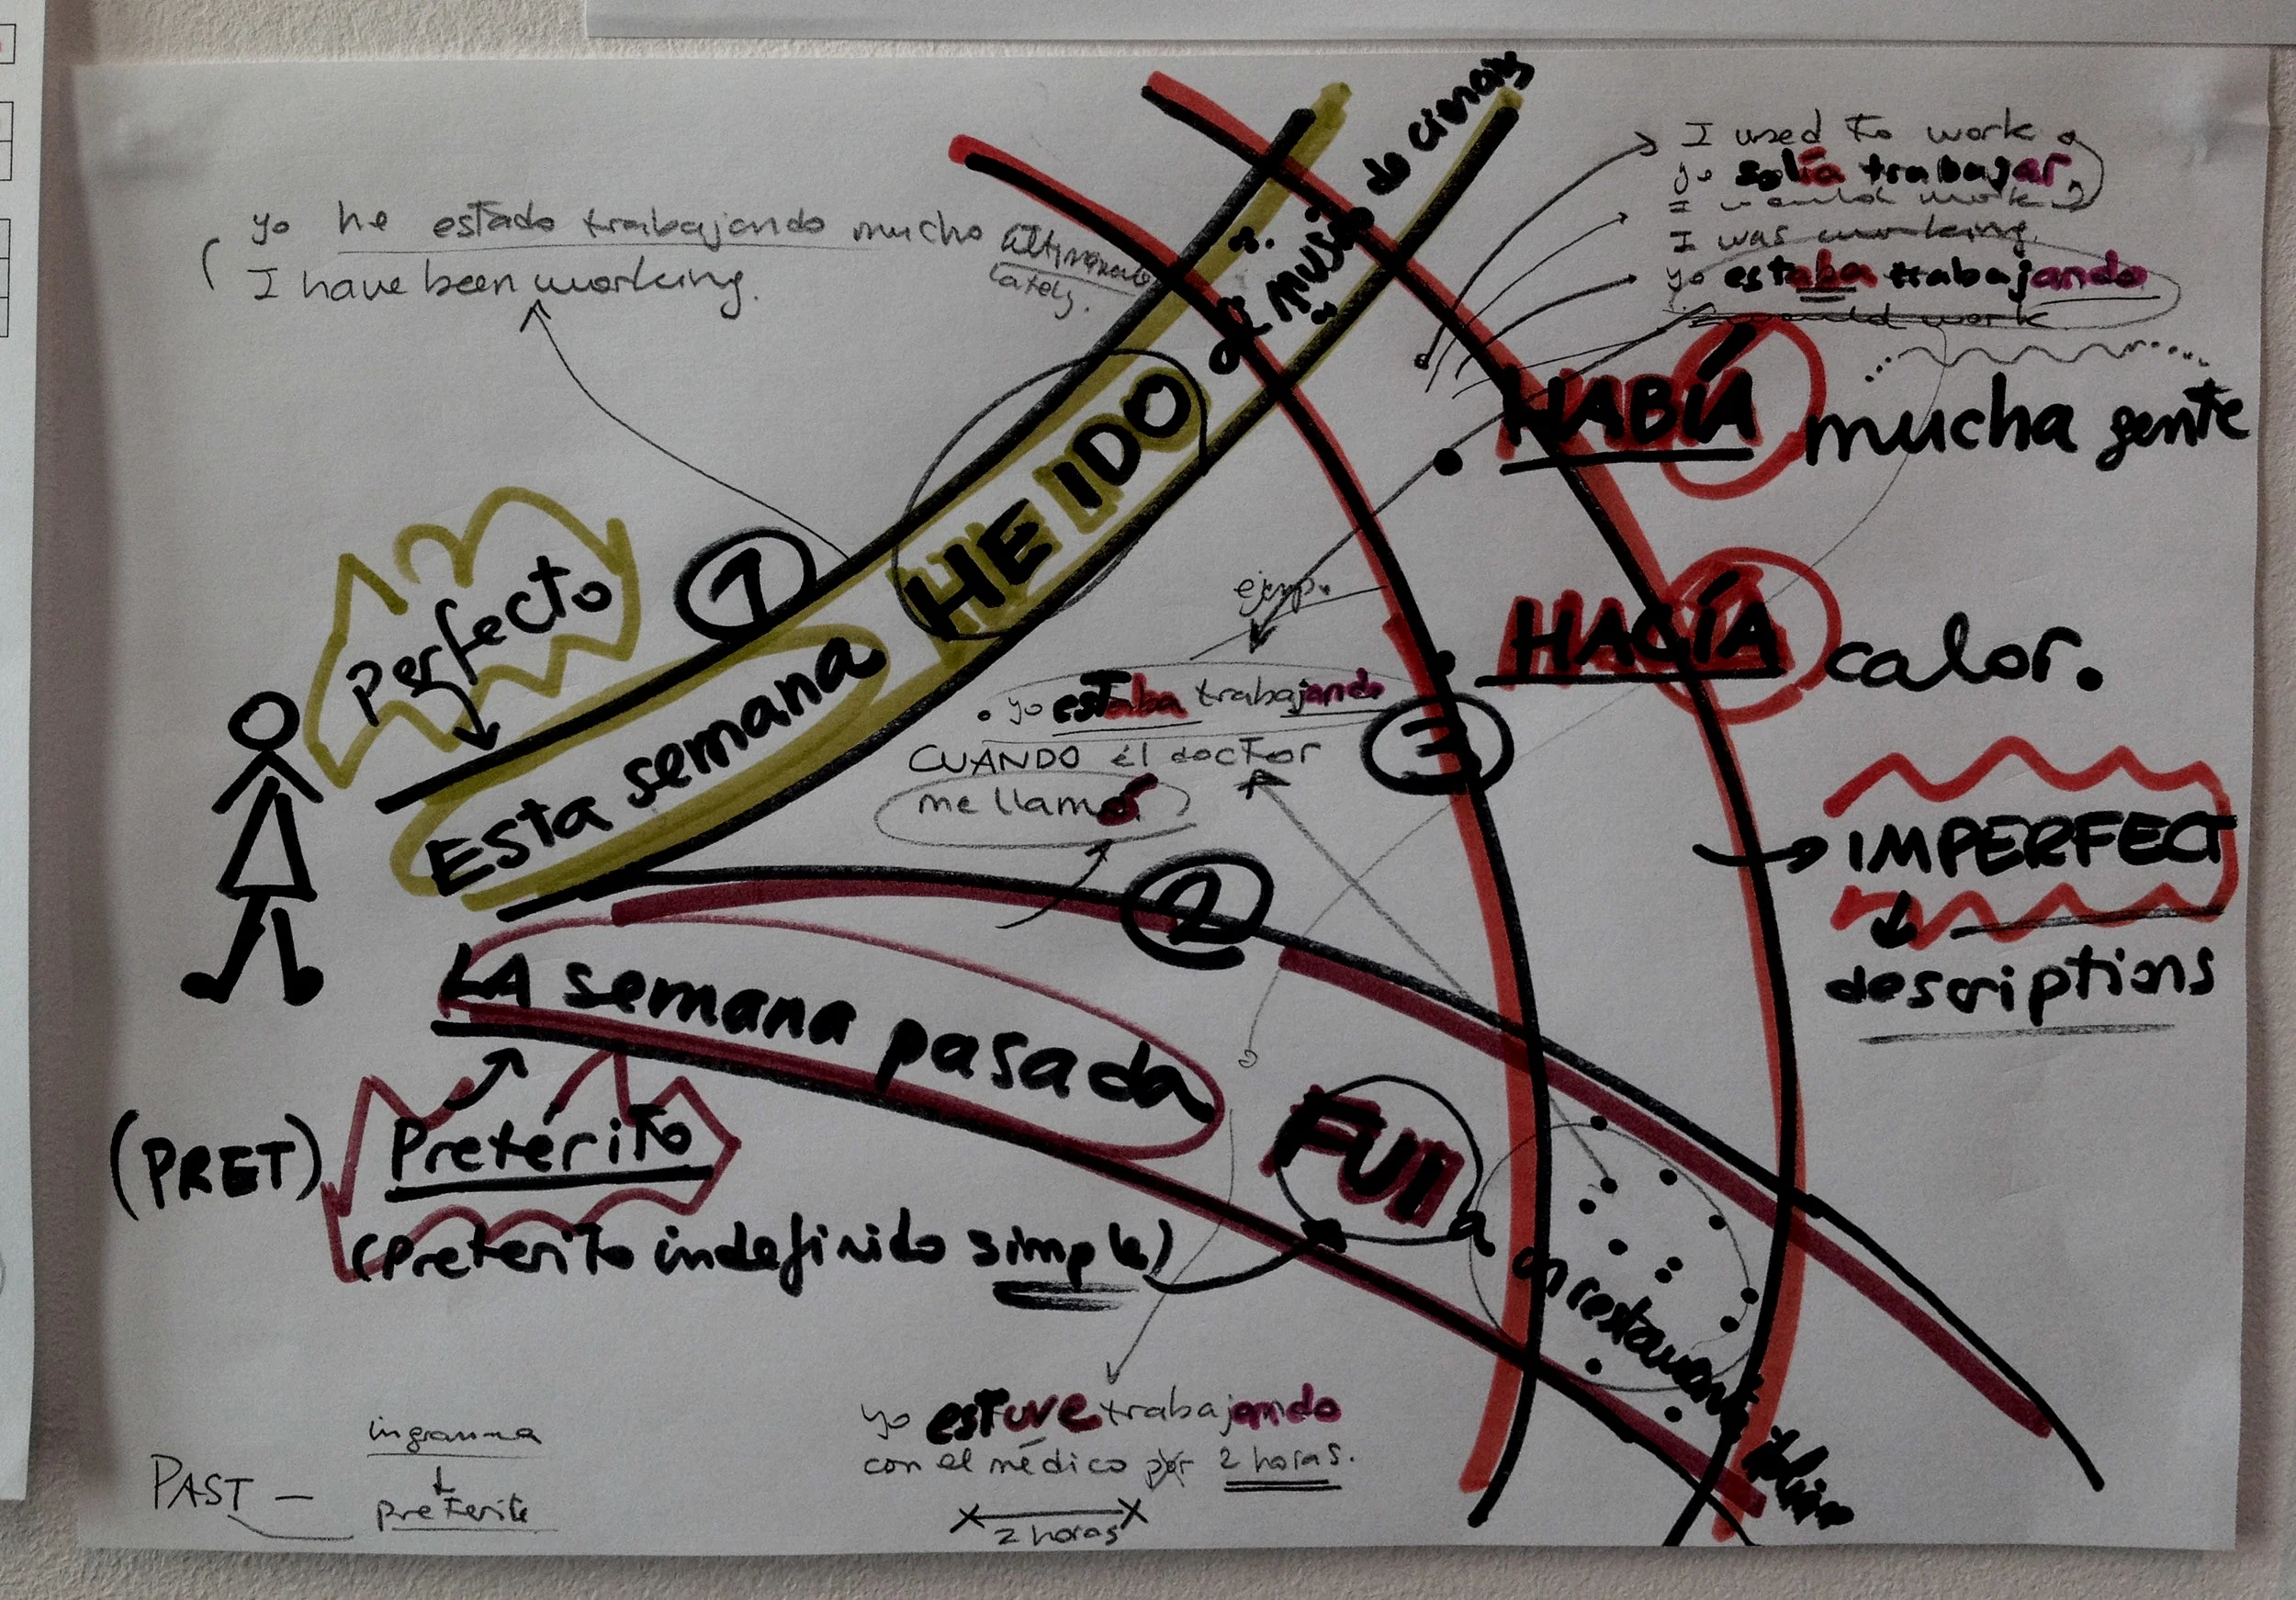 yo he estado trabajando mucho últimamente
lately.
I have been working.
I used to work
yo solía trabajar
I would work
I was working
yo estaba trabajando
I would work
HABÍA mucha gente
HACÍA calor.
→ IMPERFECT
descriptions
Perfecto
1
Esta semana HE IDO al museo de cinas
ejmp.
• yo estaba trabajando
CUANDO el doctor
me llamó
3
2
LA semana pasada FUI a un restaurant
(PRET) Pretérito
(Preterito indefinido simple)
yo estuve trabajando
con el médico por 2 horas.
2 horas
PAST —
ingramma
preterite